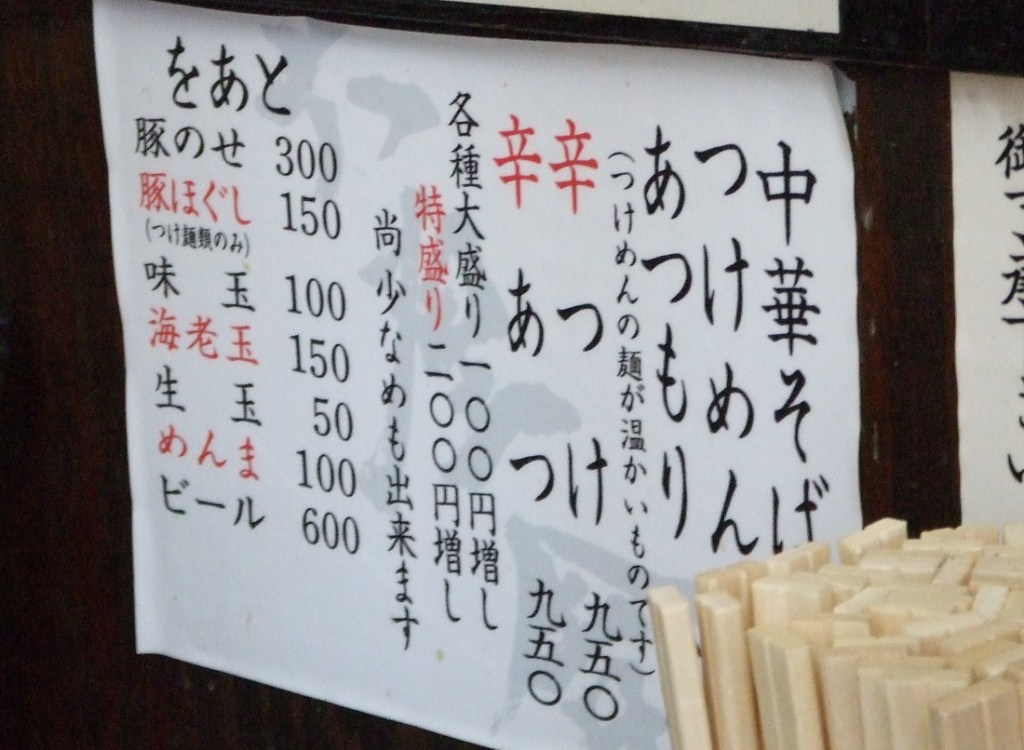 中華そば
つけめん
あつもり
(つけめんの麺が温かいものです)
辛つけ 九五〇
辛あつ 九五〇
各種大盛り 一〇〇円増し
特盛り 二〇〇円増し
尚 少なめも出来ます
をあと
豚のせ 300
豚ほぐし 150
(つけ麺類のみ)
味玉 100
海老玉 150
生玉 50
めんま 100
ビール 600